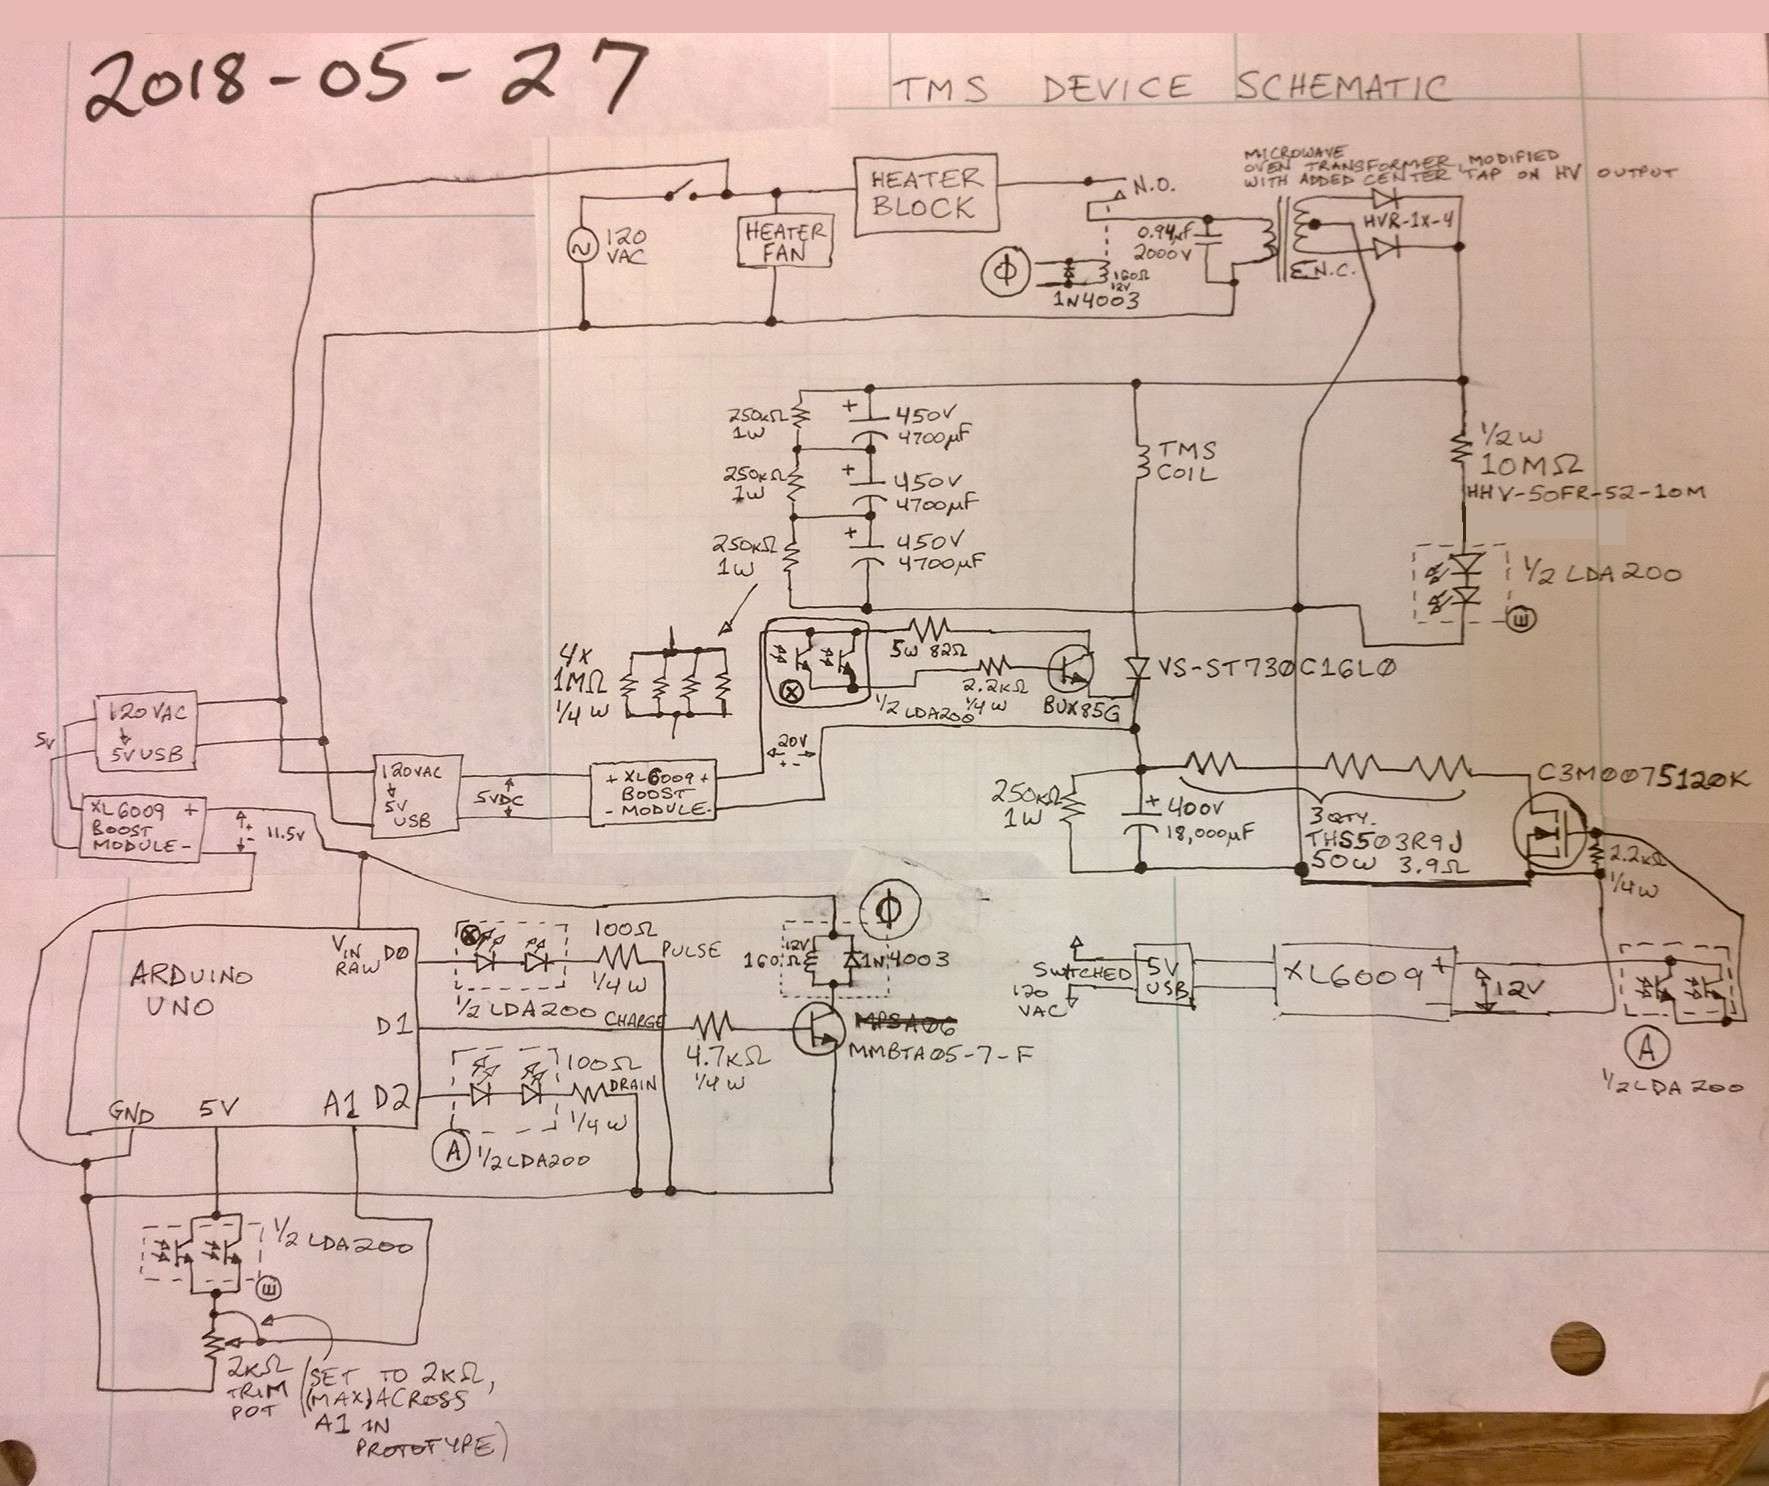 2018-05-27
TMS DEVICE SCHEMATIC
MICROWAVE
OVEN TRANSFORMER, MODIFIED
WITH ADDED CENTER TAP ON HV OUTPUT
HEATER
BLOCK
N.O.
120
VAC
HEATER
FAN
0.94µF
2000V
HVR-1X-4
N.C.
Φ
160Ω
12V
1N4003
250kΩ
1W
+
450V
4700µF
250kΩ
1W
+
450V
4700µF
250kΩ
1W
+
450V
4700µF
TMS
COIL
1/2W
10MΩ
HHV-50FR-52-10M
1/2 LDA200
E
4X
1MΩ
1/4W
X
5W 82Ω
2.2kΩ
1/4W
1/2 LDA200
BUX85G
VS-ST730C16L0
120VAC
↓
5V USB
5V
120VAC
↓
5V
USB
5VDC
+ XL6009 +
BOOST
- MODULE -
20V
+ -
XL6009 +
BOOST
MODULE -
+
-
11.5V
250kΩ
1W
+
400V
18,000µF
3 QTY.
THS503R9J
50W 3.9Ω
C3M0075120K
2.2kΩ
1/4W
ARDUINO
UNO
VIN
RAW
D0
D1
D2
GND
5V
A1
X
1/2 LDA200
100Ω
1/4W
PULSE
CHARGE
4.7kΩ
1/4W
100Ω
DRAIN
1/4W
A
1/2 LDA200
Φ
12V
160Ω
1N4003
MPSA06
MMBTA05-7-F
SWITCHED
120
VAC
5V
USB
XL6009 +
-
12V
A
1/2 LDA200
1/2 LDA200
E
2kΩ
TRIM
POT
(SET TO 2kΩ,
(MAX) ACROSS
A1 IN
PROTOTYPE)